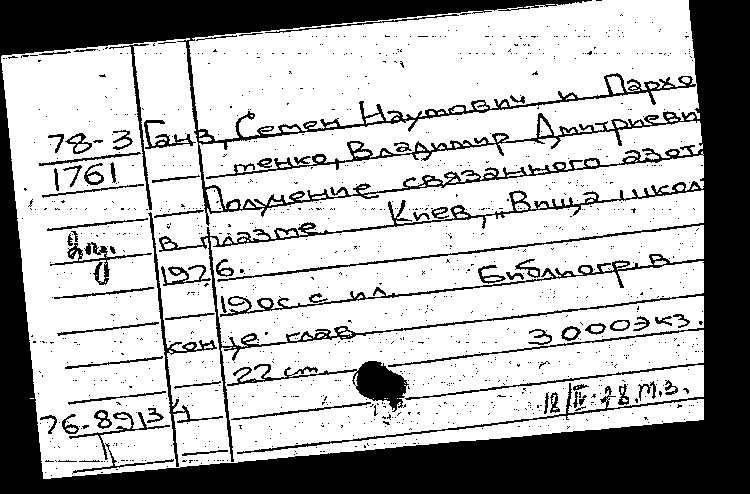 78-3 Ганз, Семен Наумович и Пархо
1761 менко, Владимир Дмитриеви
Получение связанного азота
в плазме. Киев, „Вища школ
1976.
190с. с ил. Библиогр. в
конце глав 3000экз.
22 см.
76-89134
18/IV-78. м.з.